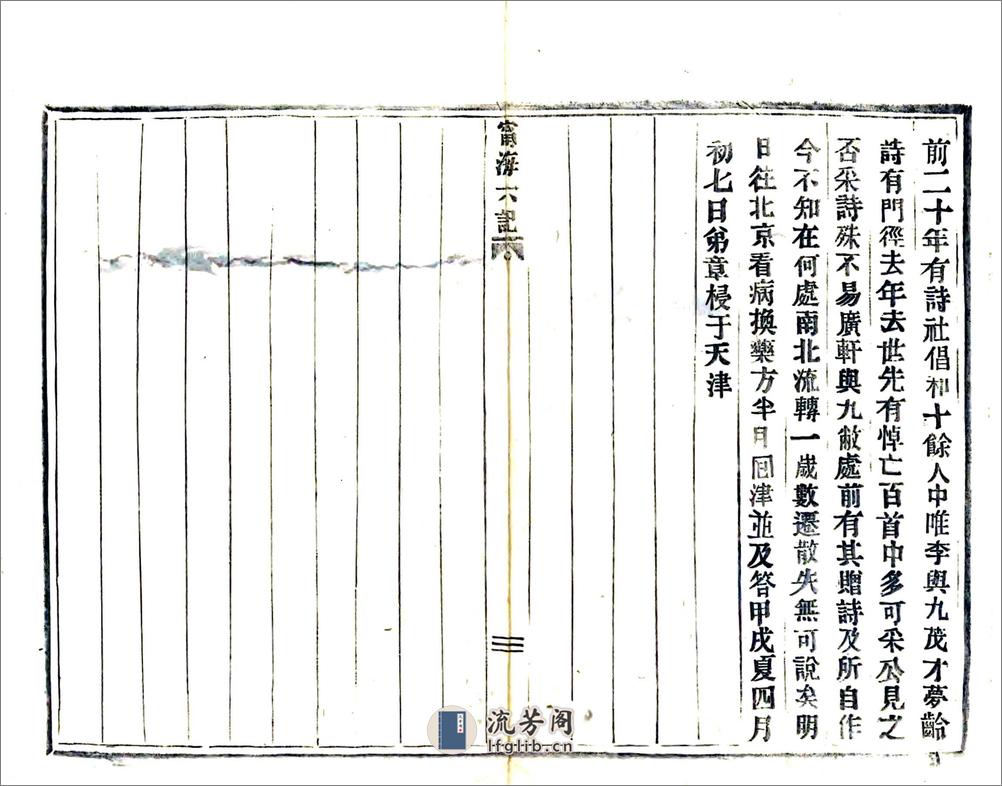 前二十年有詩社倡和十餘人中唯李與九茂才夢齡
詩有門徑去年去世先有悼亡百首中多可采公見之
否采詩殊不易廣軒與九敝處前有其贈詩及所自作
今不知在何處南北流轉一歲數遷散失無可說矣明
日往北京看病換藥方半月回津並及答甲戌夏四月
初七日弟章梫于天津
甯海六記
三
流芳阁
lfglib.cn